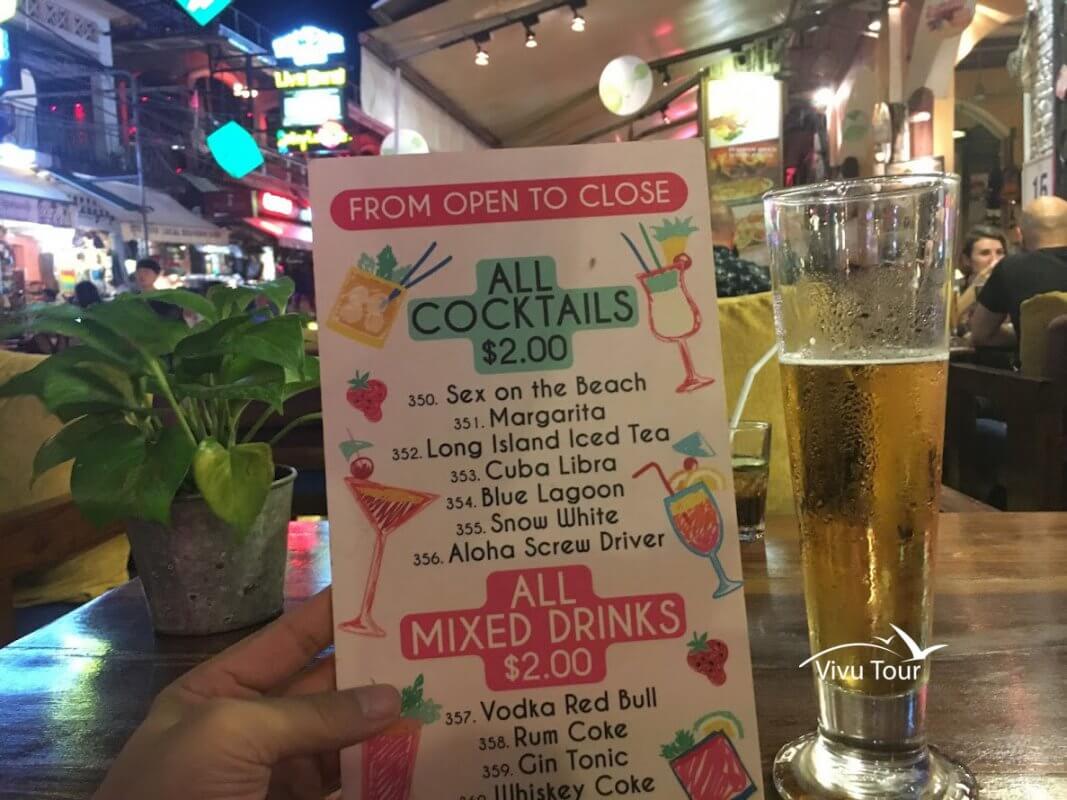 Live Band
FROM OPEN TO CLOSE
ALL
COCKTAILS
$2.00
350. Sex on the Beach
351. Margarita
352. Long Island Iced Tea
353. Cuba Libra
354. Blue Lagoon
355. Snow White
356. Aloha Screw Driver
ALL
MIXED DRINKS
$2.00
357. Vodka Red Bull
358. Rum Coke
359. Gin Tonic
360. Whiskey Coke
15
Vivu Tour